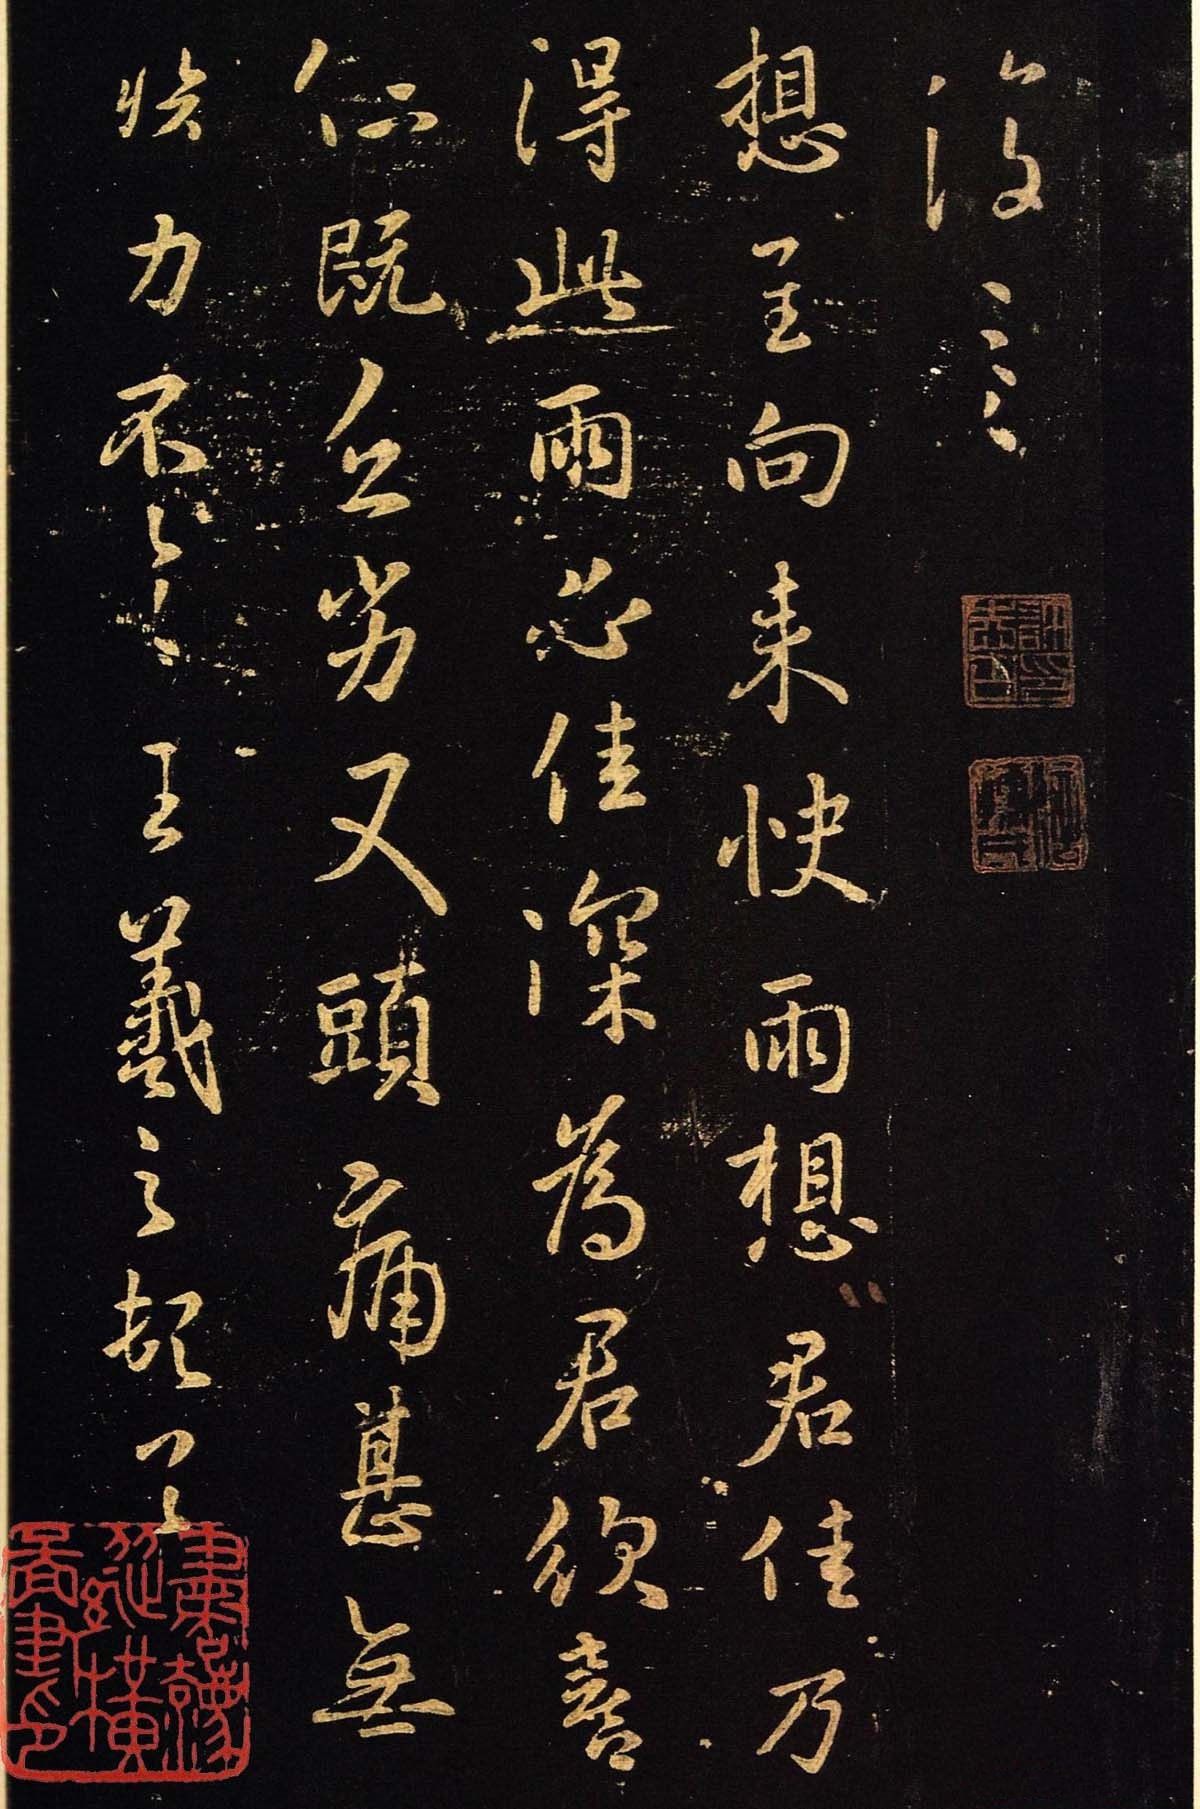 復
想至向來快雨想君佳乃
得此雨佳深為君欣喜
既勞又頭痛甚無
力不一一王羲之頓首